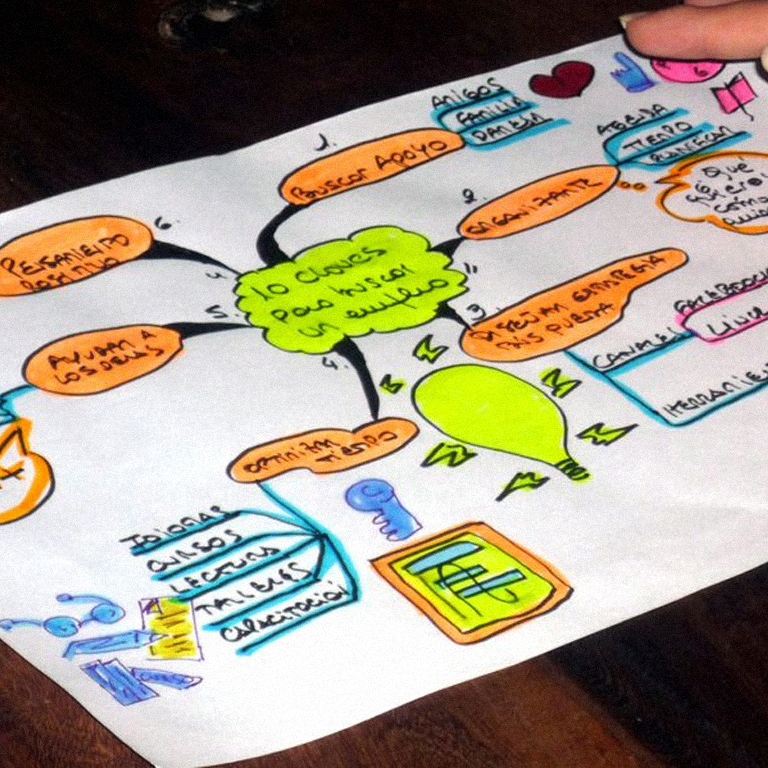 10 claves
para buscar
un empleo
1.
Buscar apoyo
AMIGOS
FAMILIA
2.
ORGANIZARTE
AGENDA
TIEMPO
PLANIFICAR
¿Qué
quiero?
cómo
3.
DISEÑAR ESTRATEGIA
CANALES
4.
OPTIMIZAR
TIEMPO
IDIOMAS
CURSOS
LECTURA
TALLERES
CAPACITACIÓN
5.
AYUDAR A
LOS DEMÁS
6.
PENSAMIENTO
POSITIVO